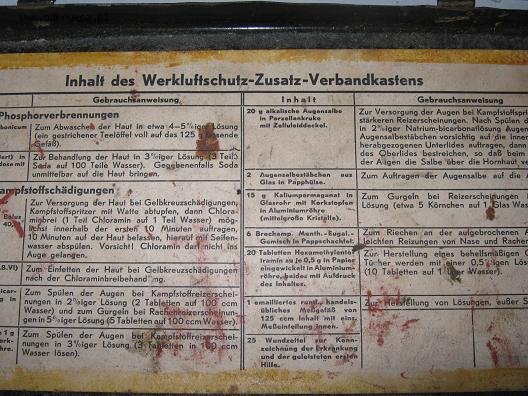 www.odkrywca.pl
Inhalt des Werkluftschutz-Zusatz-Verbandkastens
Gebrauchsanweisung
Phosphorverbrennungen
bonicum
Zum Abwaschen der Haut in etwa 4–5%iger Lösung
(ein gestrichener Teelöffel voll auf das 125 g fassende
Gefäß).
Zur Behandlung der Haut in 3%iger Lösung (3 Teile
Soda auf 100 Teile Wasser). Gegebenenfalls Soda
unmittelbar auf die Haut bringen.
ampfstoffschädigungen
Zur Versorgung der Haut bei Gelbkreuzschädigungen
Kampfstoffspritzer mit Watte abtupfen, dann Chlora-
minbrei (1 Teil Chloramin auf 1 Teil Wasser) mög-
lichst innerhalb der ersten 10 Minuten auftragen,
10 Minuten auf der Haut belassen, hierauf mit Seifen-
wasser abspülen. Vorsicht! Chloramin darf nicht ins
Auge gelangen.
Zum Einfetten der Haut bei Gelbkreuzschädigungen
nach der Chloraminbreibehandlung.
Zum Spülen der Augen bei Kampfstoffreizerschei-
nungen in 2%iger Lösung (2 Tabletten auf 100 ccm
Wasser) und zum Gurgeln bei Rachenreizerscheinun-
gen in 5%iger Lösung (5 Tabletten auf 100 ccm Wasser).
Zum Spülen der Augen bei Kampfstoffreizerschei-
nungen in 3%iger Lösung (3 Tabletten in 100 ccm
Wasser lösen).
Inhalt
20 g alkalische Augensalbe
in Porzellankruke
mit Zelluloiddeckel.
2 Augensalbestäbchen aus
Glas in Papphülse.
15 g Kaliumpermanganat in
Glasrohr mit Korkstopfen
in Aluminiumröhre
(mittelgroße Kristalle).
6 Brechamp. Menth.-Eugal.-
Gemisch in Pappschachtel.
20 Tabletten Hexamethylente-
tramin zu je 0,5 g in Papier
eingewickelt in Aluminium-
röhre, beides mit Aufdruck
des Inhaltes.
1 emailliertes rundes handels-
übliches Meßgefäß von
125 ccm Inhalt mit ens.
Meßeinteilung innen.
25 Wundzettel zur Kenn-
zeichnung der Erkrankung
und der geleisteten ersten
Hilfe.
Gebrauchsanweisung
Zur Versorgung der Augen bei Kampfstoffspri
stärkeren Reizerscheinungen. Nach Spülen d
in 2%iger Natrium-bicarbonatlösung Augen
Augensalbestäbchen vorsichtig auf die Innen
herabgezogenen Unterlides auftragen, dann
des Oberlides bestreichen, so daß beim
der Augen die Salbe über die Hornhaut ver
Zum Auftragen der Augensalbe auf die A
Zum Gurgeln bei Reizerscheinungen
Lösung (etwa 5 Körnchen auf 1 Glas Wass
Zum Riechen an der aufgebrochenen A
leichten Reizungen von Nase und Rachen
Zur Herstellung eines behelfsmäßigen
Tücher werden mit einer 0,5 igen Lösung
(10 Tabletten auf 1 Wasser).
Zur Herstellung von Lösungen, außer S